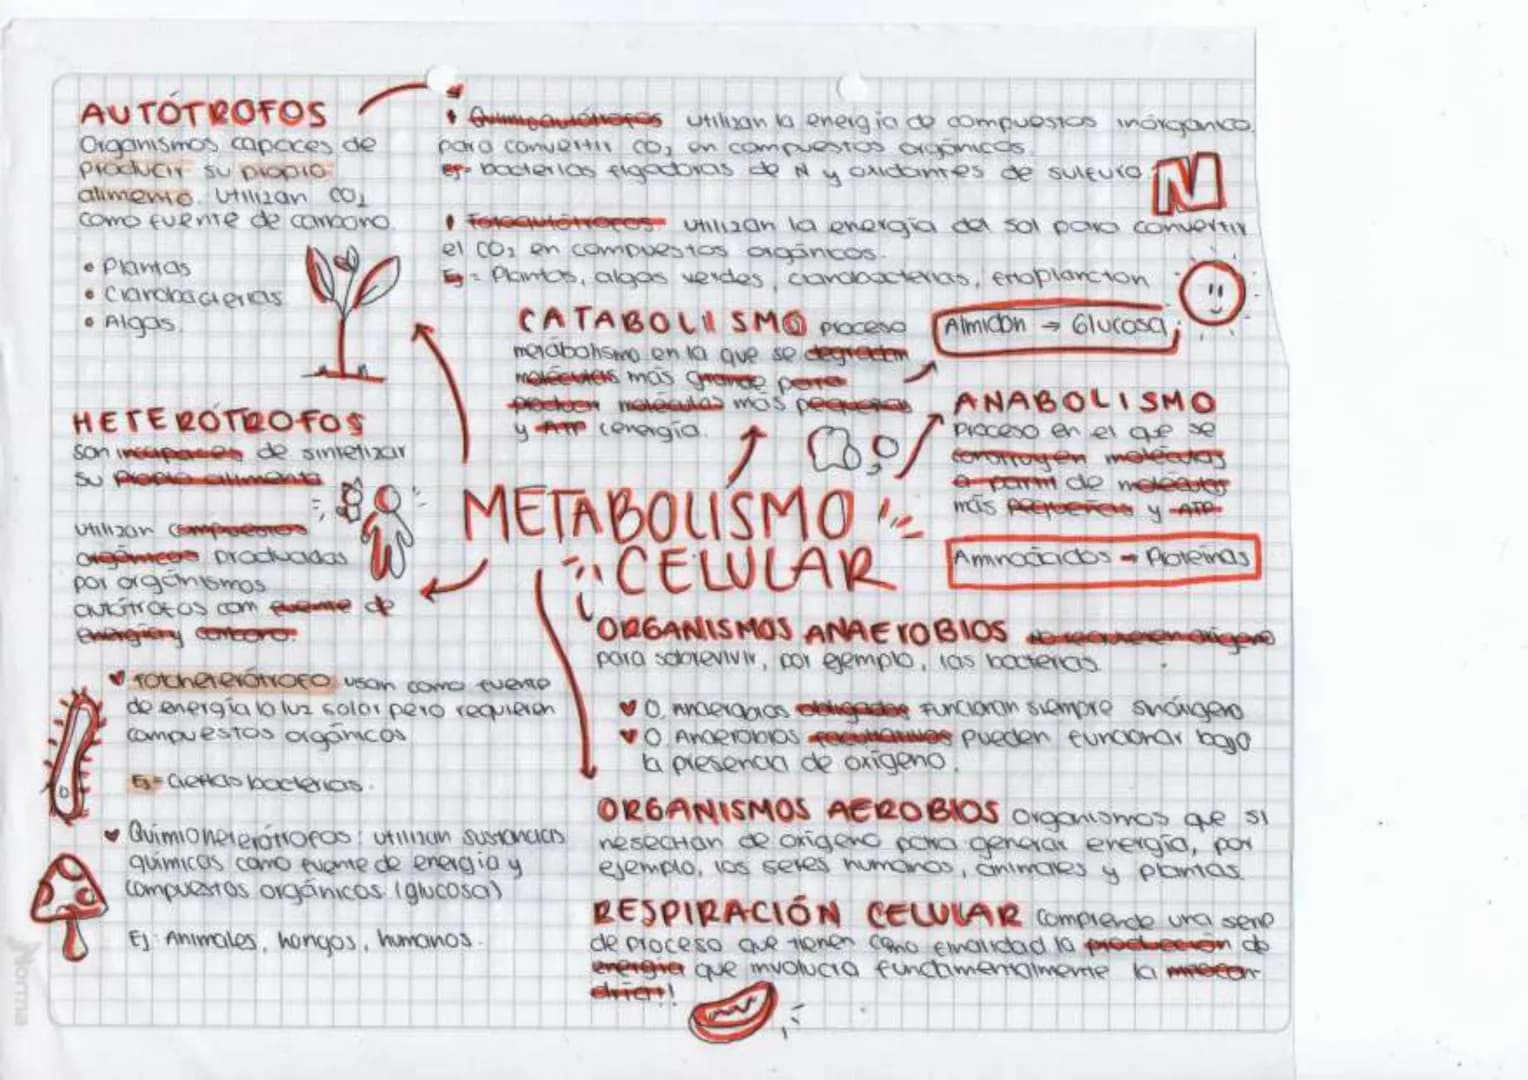 AUTÓTROFOS
Organismos capaces de
producir su propio
alimento. Utilizan CO2
como fuente de carbono.
• Plantas
• Cianobacterias
• Algas.
• Quimioautótrofos utilizan la energía de compuestos inórganico
para convertir CO2 en compuestos orgánicos.
Ej- bacterias figadoras de N y oxidantes de sulfuro.
N
• Fotoautótrofos utilizan la energía del sol para convertir
el CO2 en compuestos orgánicos.
Ej = Plantas, algas verdes, cianobacterias, fitoplancton
CATABOLISMO proceso
metabolismo en la que se degradan
moléculas más grande para
producir moléculas más pequeñas
y ATP (energía.
Almidón → Glucosa
ANABOLISMO
Proceso en el que se
construyen moléculas
a partir de moléculas
más pequeñas y ATP
Aminoácidos → Proteínas
HETERÓTROFOS
son incapaces de sintetizar
su propio alimento
Utilizan compuestos
orgánicos producidos
por orgánismos
autótrofos com fuente de
energía y carbono.
METABOLISMO
CELULAR
♥ Fotoheterótrofo usan como fuente
de energía la luz solar pero requieren
compuestos orgánicos
Ej= Ciertas bacterias.
♥ Quimioheterótrofos: utilizan sustancias
químicas como fuente de energía y
compuestos orgánicos (glucosa)
Ej: Animales, hongos, humanos.
ORGANISMOS ANAEROBIOS No requieren oxígeno
para sobrevivir, por ejemplo, las bacterias.
♥ O. Anaerobios obligados funcionan siempre sin óxigeno
♥ O. Anaerobios facultativos pueden funcionar bajo
la presencia de oxígeno.
ORGANISMOS AEROBIOS Organismos que si
nesecitan de oxígeno para generar energía, por
ejemplo, los seres humanos, animales y plantas.
RESPIRACIÓN CELULAR comprende una serie
de proceso que tienen como finalidad la producción de
energía que involucra fundamentalmente la mitocon
dria!!
Norma